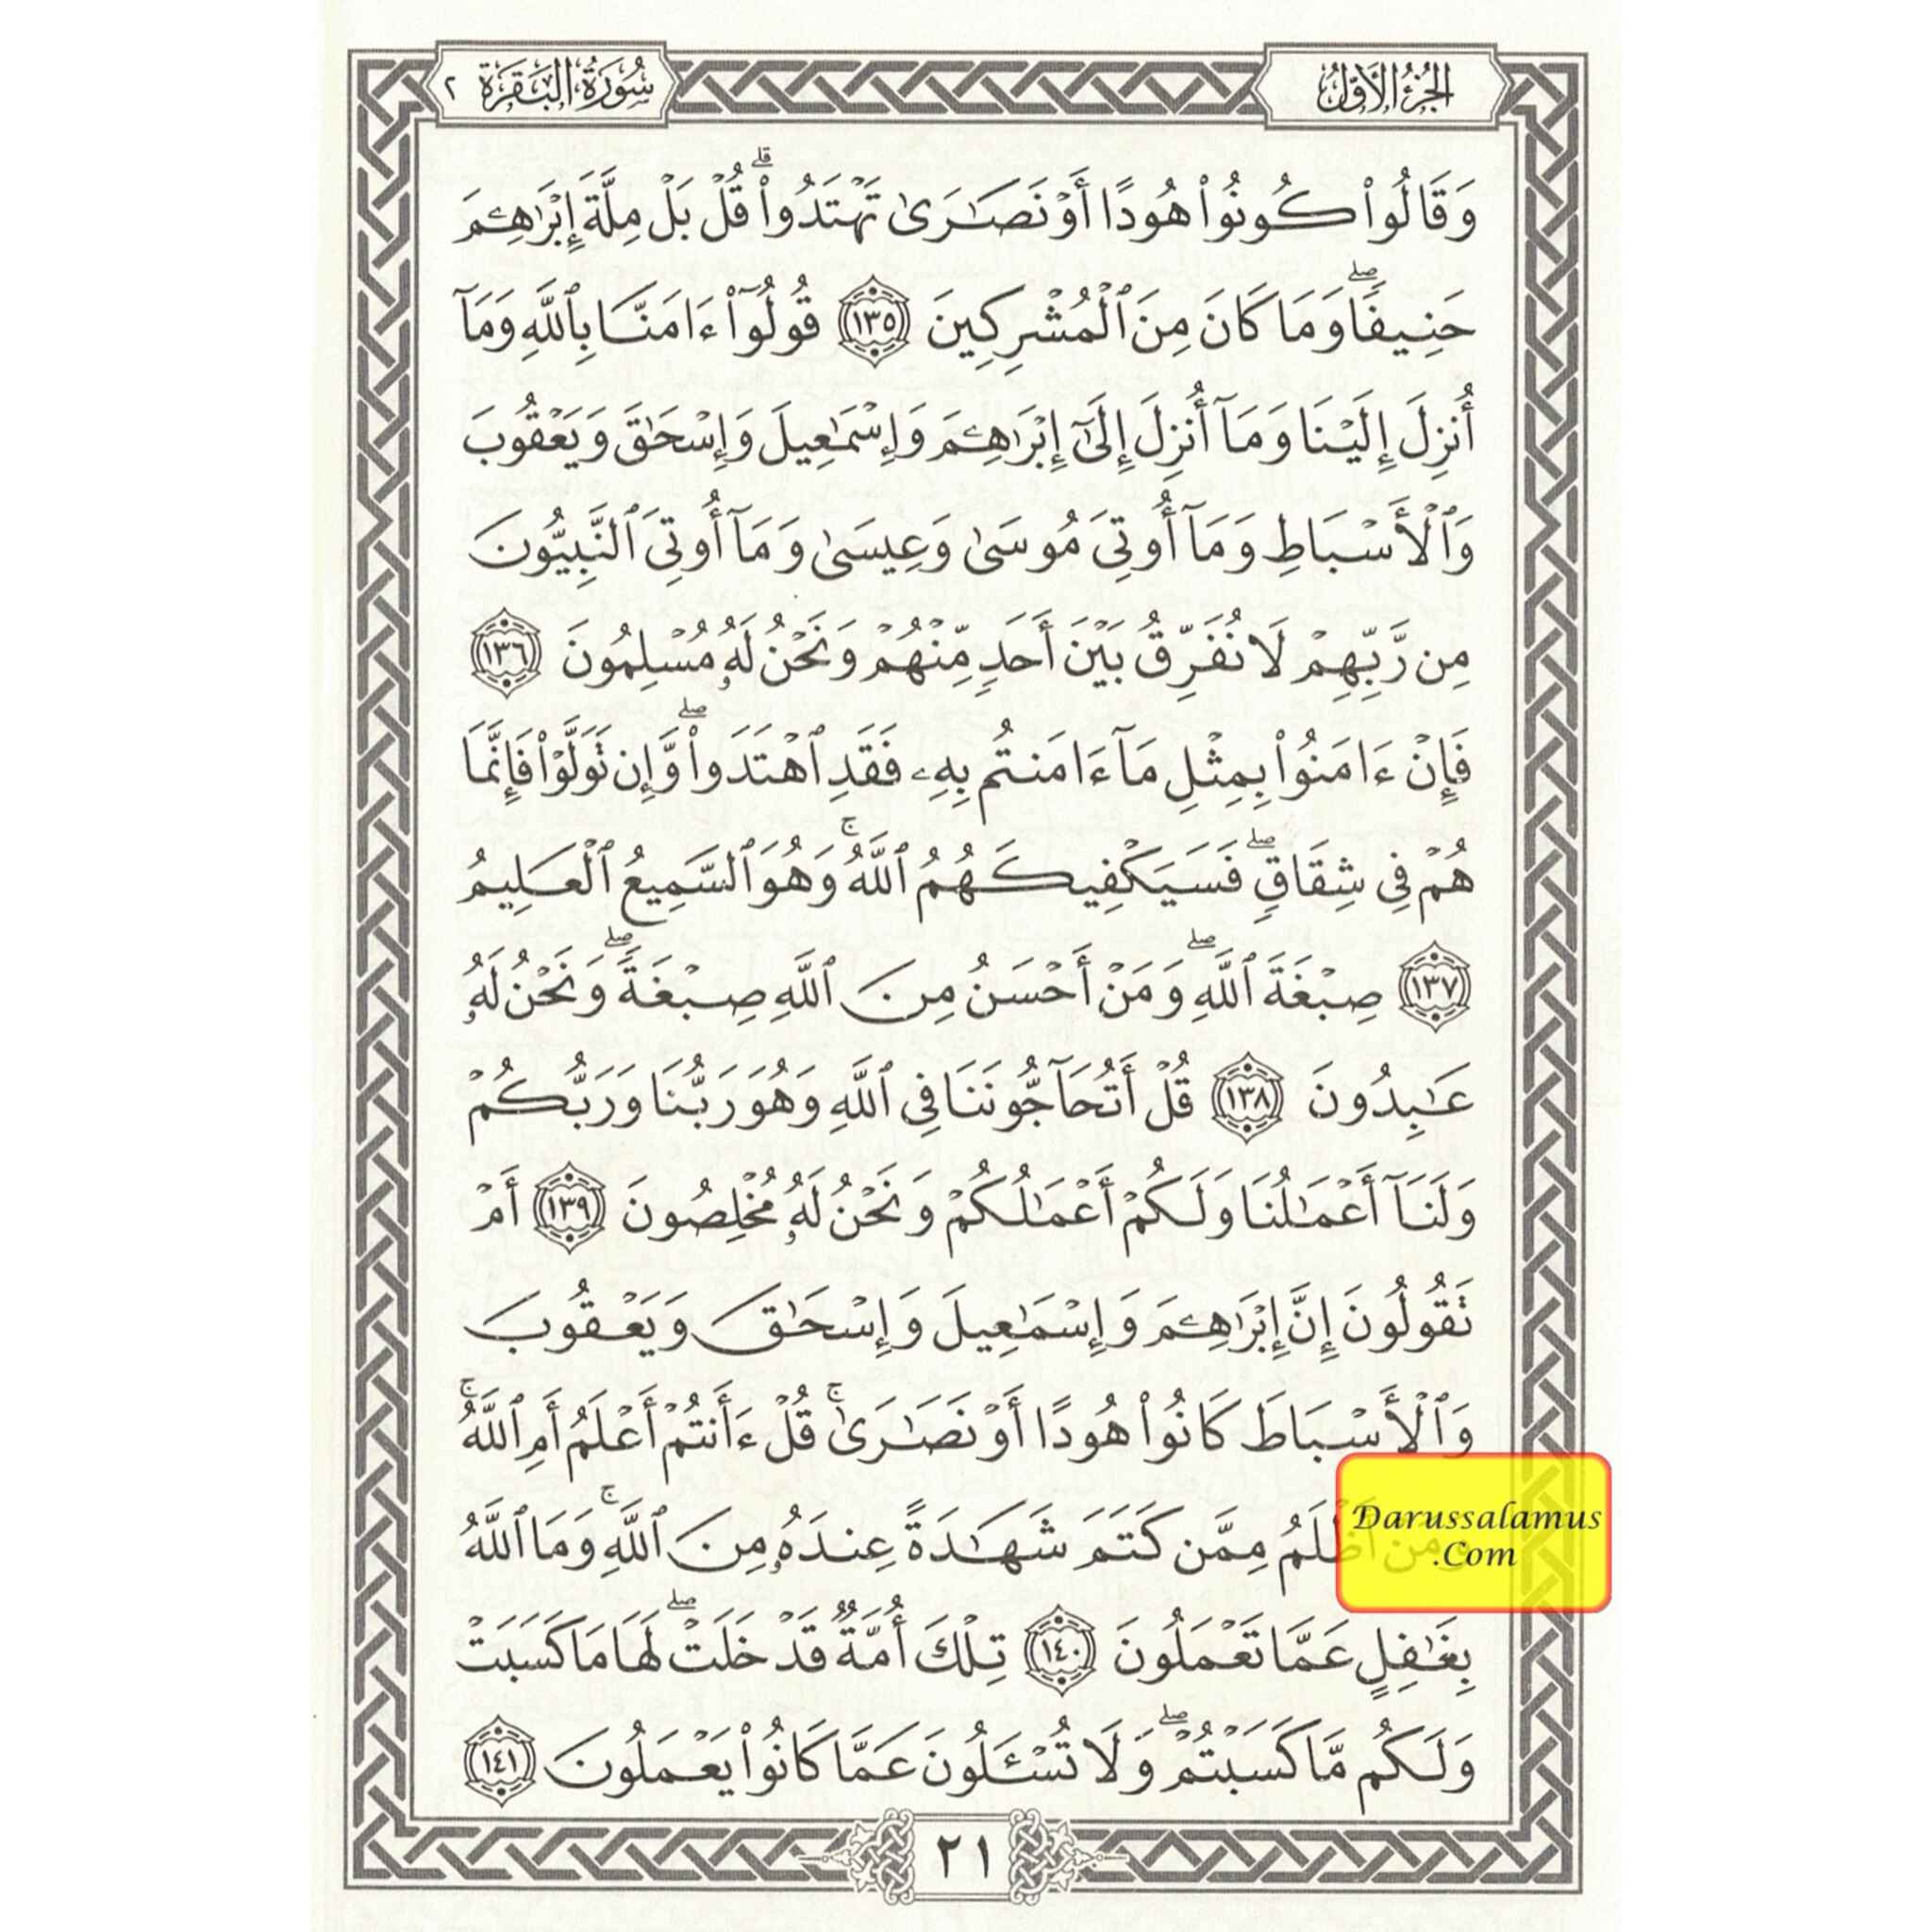 الجزء الأول
سورة البقرة ٢
وَقَالُوا۟ كُونُوا۟ هُودًا أَوْ نَصَـٰرَىٰ تَهْتَدُوا۟ ۗ قُلْ بَلْ مِلَّةَ إِبْرَٰهِـۧمَ
حَنِيفًا ۖ وَمَا كَانَ مِنَ ٱلْمُشْرِكِينَ ١٣٥ قُولُوٓا۟ ءَامَنَّا بِٱللَّهِ وَمَآ
أُنزِلَ إِلَيْنَا وَمَآ أُنزِلَ إِلَىٰٓ إِبْرَٰهِـۧمَ وَإِسْمَـٰعِيلَ وَإِسْحَـٰقَ وَيَعْقُوبَ
وَٱلْأَسْبَاطِ وَمَآ أُوتِىَ مُوسَىٰ وَعِيسَىٰ وَمَآ أُوتِىَ ٱلنَّبِيُّونَ
مِن رَّبِّهِمْ لَا نُفَرِّقُ بَيْنَ أَحَدٍ مِّنْهُمْ وَنَحْنُ لَهُۥ مُسْلِمُونَ ١٣٦
فَإِنْ ءَامَنُوا۟ بِمِثْلِ مَآ ءَامَنتُم بِهِۦ فَقَدِ ٱهْتَدَوا۟ ۖ وَّإِن تَوَلَّوْا۟ فَإِنَّمَا
هُمْ فِى شِقَاقٍ ۖ فَسَيَكْفِيكَهُمُ ٱللَّهُ ۚ وَهُوَ ٱلسَّمِيعُ ٱلْعَلِيمُ
١٣٧ صِبْغَةَ ٱللَّهِ ۖ وَمَنْ أَحْسَنُ مِنَ ٱللَّهِ صِبْغَةً ۖ وَنَحْنُ لَهُۥ
عَـٰبِدُونَ ١٣٨ قُلْ أَتُحَآجُّونَنَا فِى ٱللَّهِ وَهُوَ رَبُّنَا وَرَبُّكُمْ
وَلَنَآ أَعْمَـٰلُنَا وَلَكُمْ أَعْمَـٰلُكُمْ وَنَحْنُ لَهُۥ مُخْلِصُونَ ١٣٩ أَمْ
تَقُولُونَ إِنَّ إِبْرَٰهِـۧمَ وَإِسْمَـٰعِيلَ وَإِسْحَـٰقَ وَيَعْقُوبَ
وَٱلْأَسْبَاطَ كَانُوا۟ هُودًا أَوْ نَصَـٰرَىٰ ۗ قُلْ ءَأَنتُمْ أَعْلَمُ أَمِ ٱللَّهُ ۗ
وَمَنْ أَظْلَمُ مِمَّن كَتَمَ شَهَـٰدَةً عِندَهُۥ مِنَ ٱللَّهِ ۗ وَمَا ٱللَّهُ
بِغَـٰفِلٍ عَمَّا تَعْمَلُونَ ١٤٠ تِلْكَ أُمَّةٌ قَدْ خَلَتْ ۖ لَهَا مَا كَسَبَتْ
وَلَكُم مَّا كَسَبْتُمْ ۖ وَلَا تُسْـَٔلُونَ عَمَّا كَانُوا۟ يَعْمَلُونَ ١٤١
٢١
Darussalamus
.Com